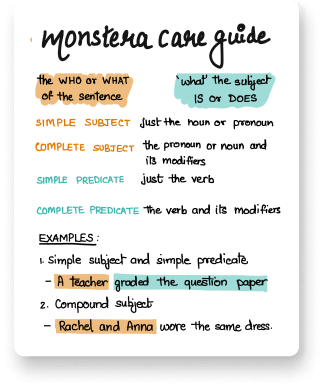 monstera care guide
the WHO or WHAT of the sentence
'what' the subject IS or DOES
SIMPLE SUBJECT just the noun or pronoun
COMPLETE SUBJECT the pronoun or noun and its modifiers
SIMPLE PREDICATE just the verb
COMPLETE PREDICATE the verb and its modifiers
EXAMPLES :
1. Simple subject and simple predicate
– A teacher graded the question paper
2. Compound subject
– Rachel and Anna wore the same dress.